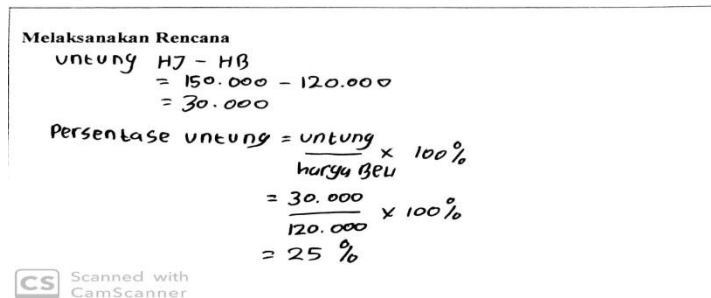 Melaksanakan Rencana
untung HJ - HB
= 150.000 - 120.000
= 30.000
Persentase untung = untung
× 100%
harga Beli
= 30.000
× 100%
120.000
= 25 %
CS Scanned with
CamScanner